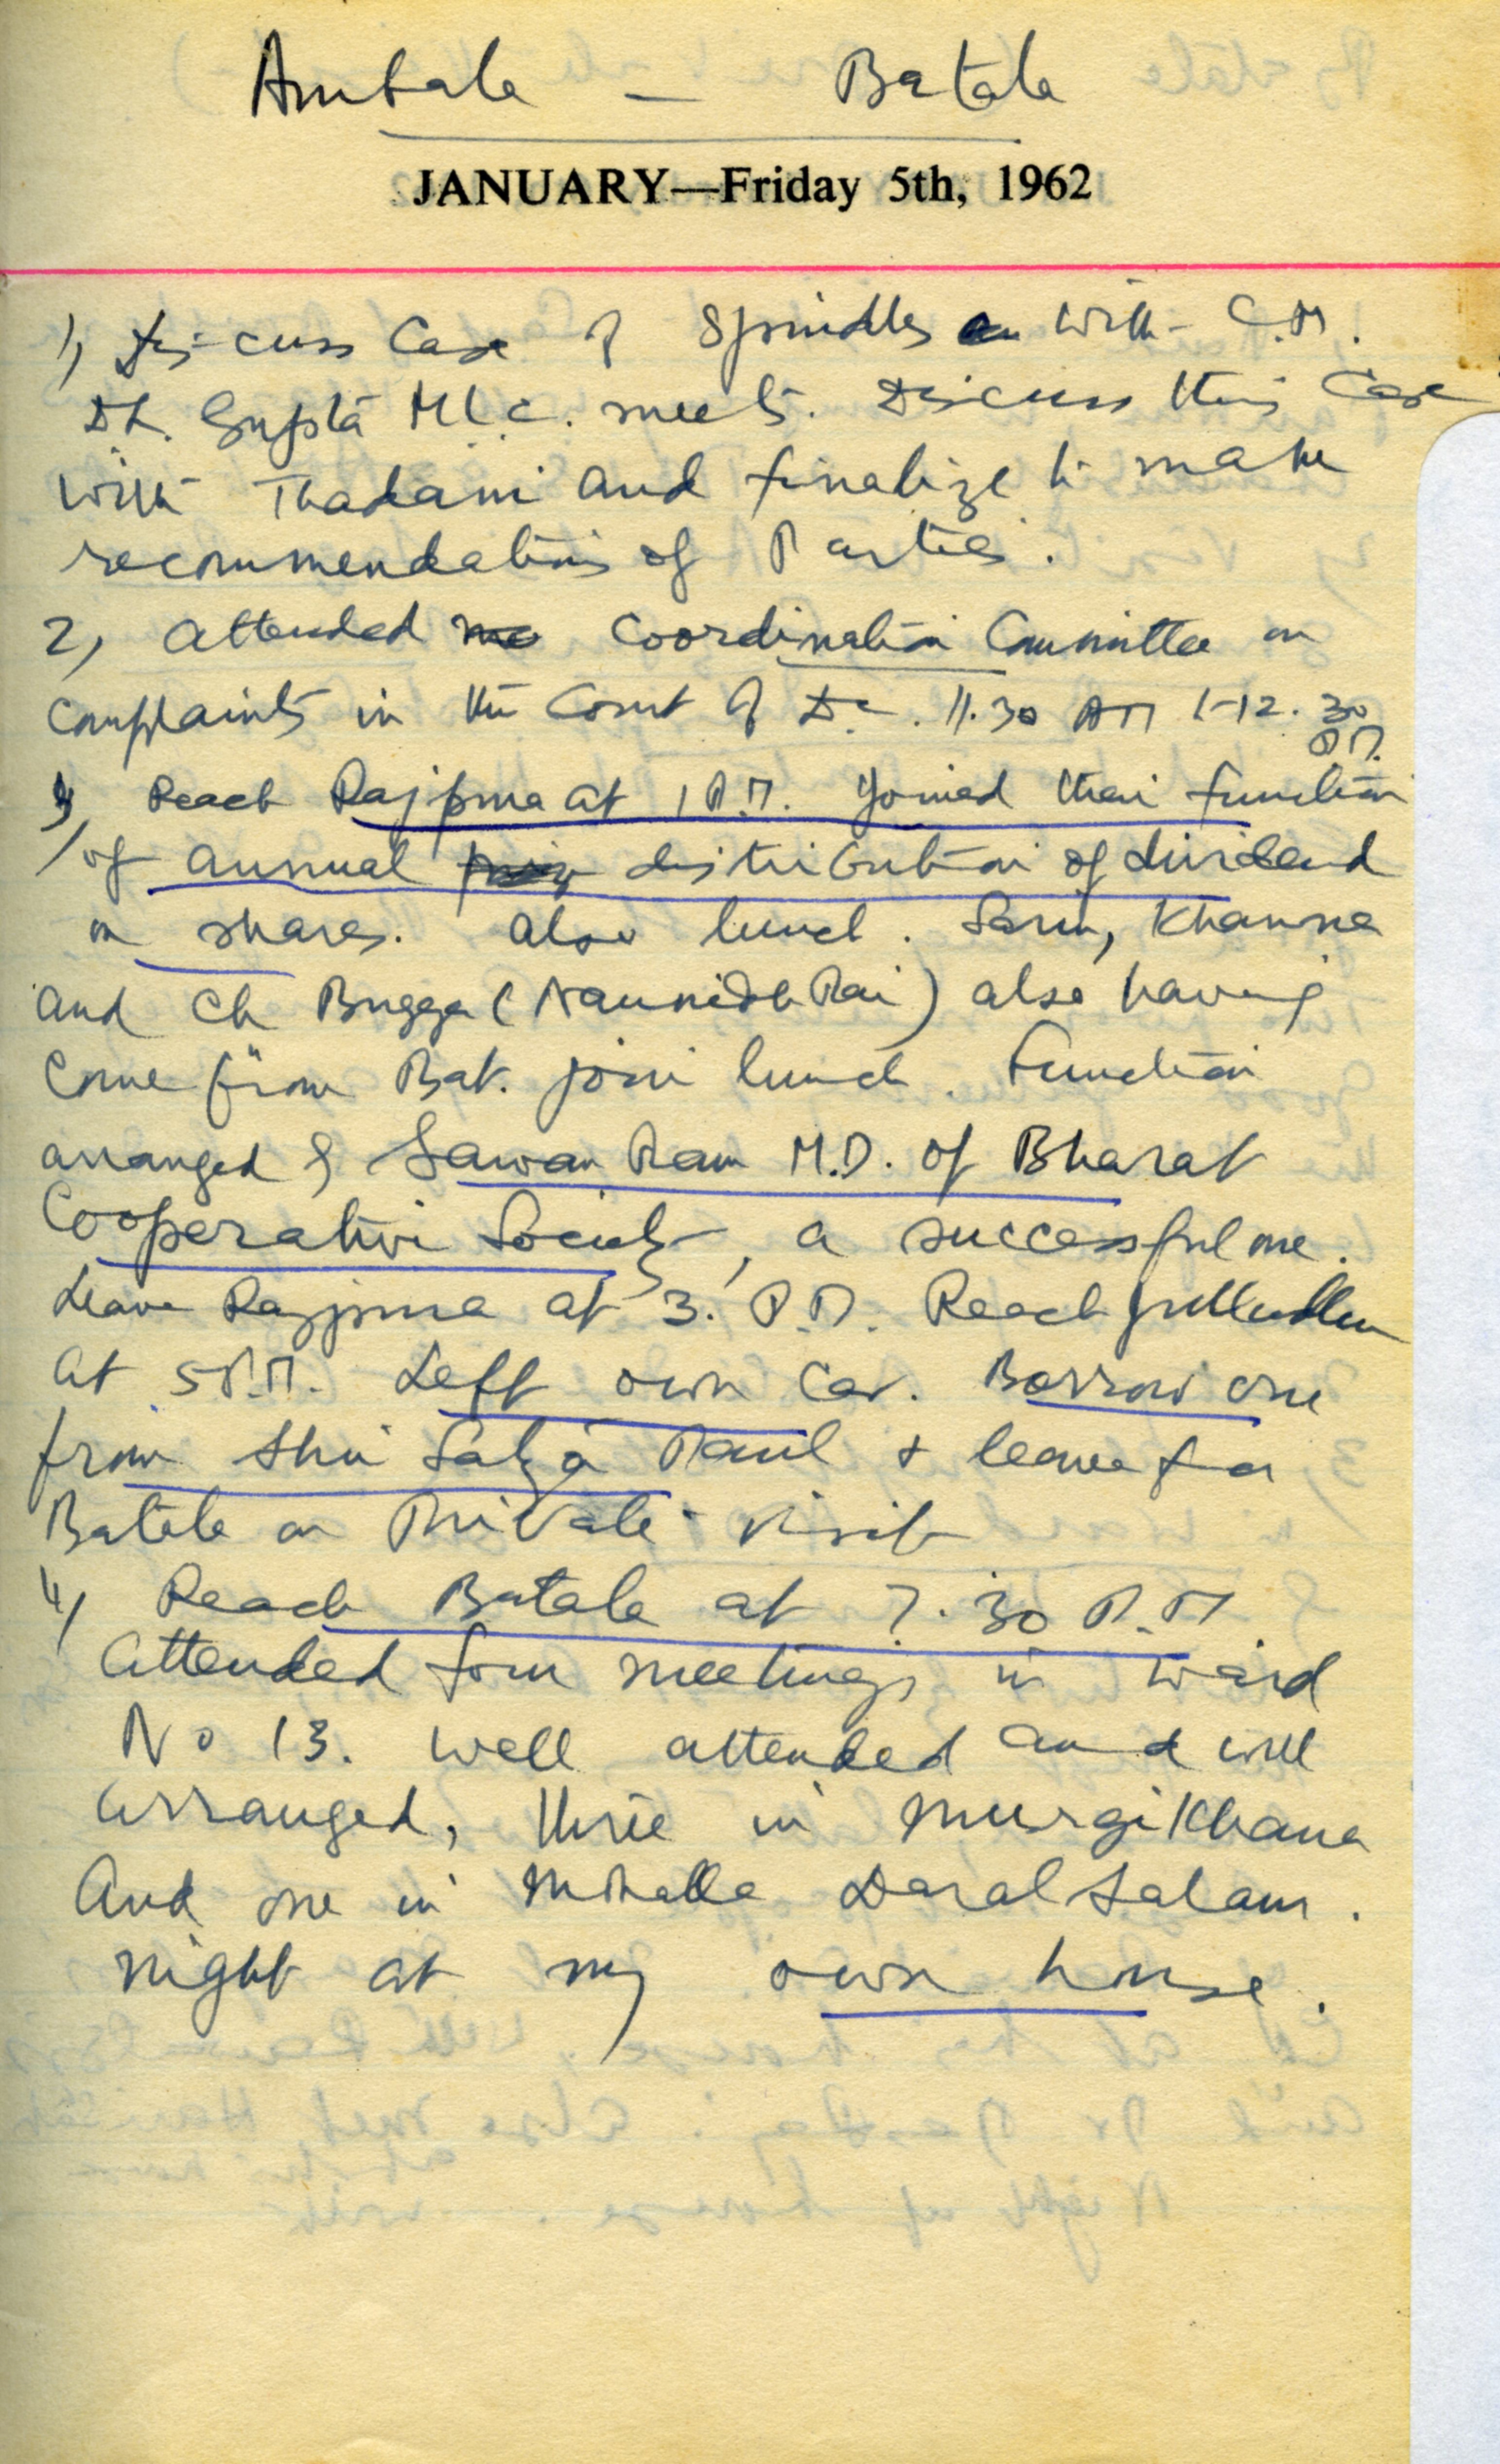 Ambala — Batala
JANUARY—Friday 5th, 1962
1, Discuss Case of Spindles with C.M.
Dr. Gupta M.L.C. meets. Discuss this Case
with Thadani and finalize to make
recommendations of Parties.
2, Attended Coordination Committee on
Complaints in the Court of D.C. 11.30 AM to 12.30
P.M.
3, Reach Rajpura at 1 P.M. Joined their function
of annual distribution of dividend
on shares. Also lunch. Sarin, Khanna
and Ch Bugga (Naunidh Rai) also having
Come from Bat. join lunch. Function
arranged by Sawan Ram M.D. of Bharat
Cooperative Society, a successful one.
Leave Rajpura at 3. P.M. Reach Jullundur
at 5 P.M. Left own Car. Borrow one
from Shri Satya Paul & leave for
Batala on Private visit
4, Reach Batala at 7.30 P.M
Attended four meetings in ward
No 13. Well attended and well
arranged, three in Murgi Khana
And one in Mohalla Daral Salam.
Night at my own house.